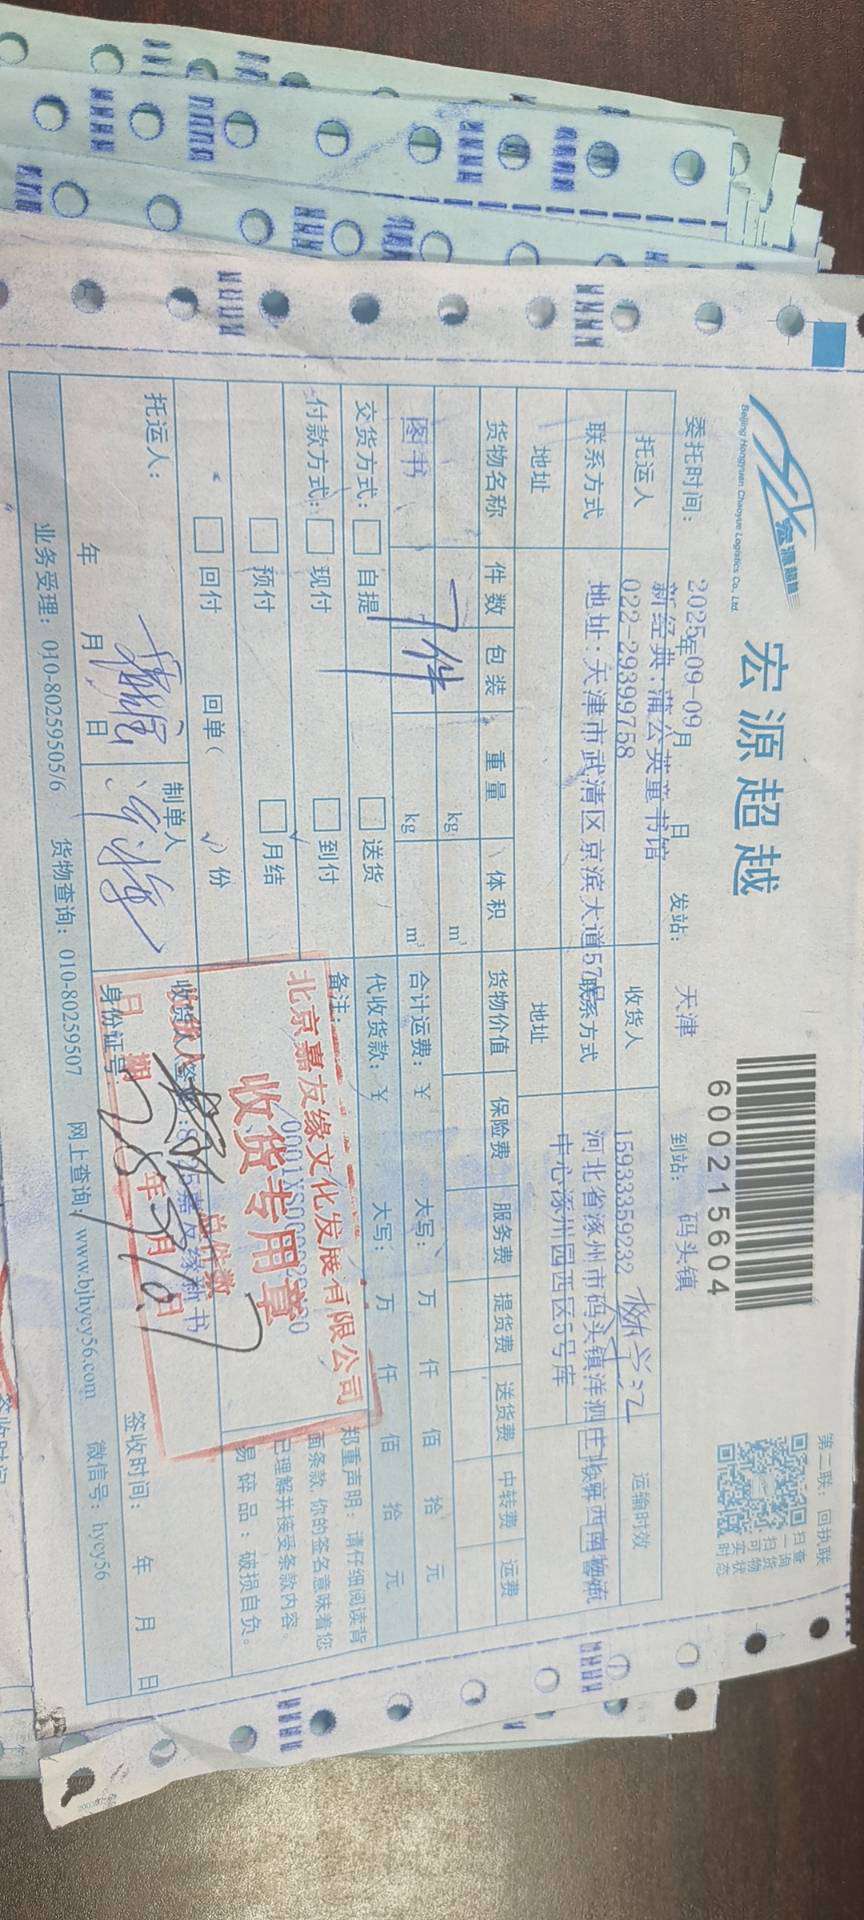 宏源超越
Beijing Hongyuan Chaoyue Logistics Co., Ltd.
宏源超越
600215604
第二联：回执联
扫一扫 查询货物状态
委托时间： 2025年09-09月 日 发站： 天津 到站： 码头镇
托运人 新经典.蒲公英童书馆 收货人 运输时效
联系方式 022-29399758 联系方式 15933359232
地址 地址：天津市武清区京滨大道57号 地址 河北省涿州市码头镇洋泗庄
中心涿州园西区5号库
货物名称 件数 包装 重量 体积 货物价值 保险费 服务费 提货费 送货费 中转费 运费
kg m³
图书 7件 kg m³ 合计运费：¥ 大写： 万 仟 佰 拾 元
交货方式： 自提 送货 代收货款：¥ 大写： 万 仟 佰 拾 元
付款方式： 现付 到付 备注：
预付 月结
回付 回单（ √ ）份
郑重声明：请仔细阅读背
面条款，你的签名意味着您
已理解并接受条款内容。
易碎品：破损自负。
北京嘉友缘文化发展有限公司
收货专用章
总件数
日期 25年9月10日
托运人： 年 月 日 制单人
收货人签
身份证号 签收时间： 年 月 日
嘉友缘新书
业务受理：010-80259505/6 货物查询：010-80259507 网上查询：www.bjhycy56.com 微信号：hycy56
签收时间